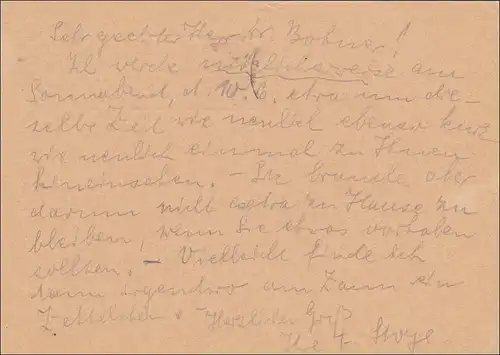 Sehr geehrter Herr Dr. Bohner!
Ich werde möglicherweise am
Sonnabend, d. 10. 6. etwa um die-
selbe Zeit wie neulich ebenso kurz
wie neulich einmal zu Ihnen
hineinsehen. – Sie brauchen aber
darum nicht extra zu Hause zu
bleiben, wenn Sie etwas vorhaben
sollten. – Vielleicht finde ich
dann irgendwo am Zaun ein
Zettelchen. Herzlichen Gruß
Ihr